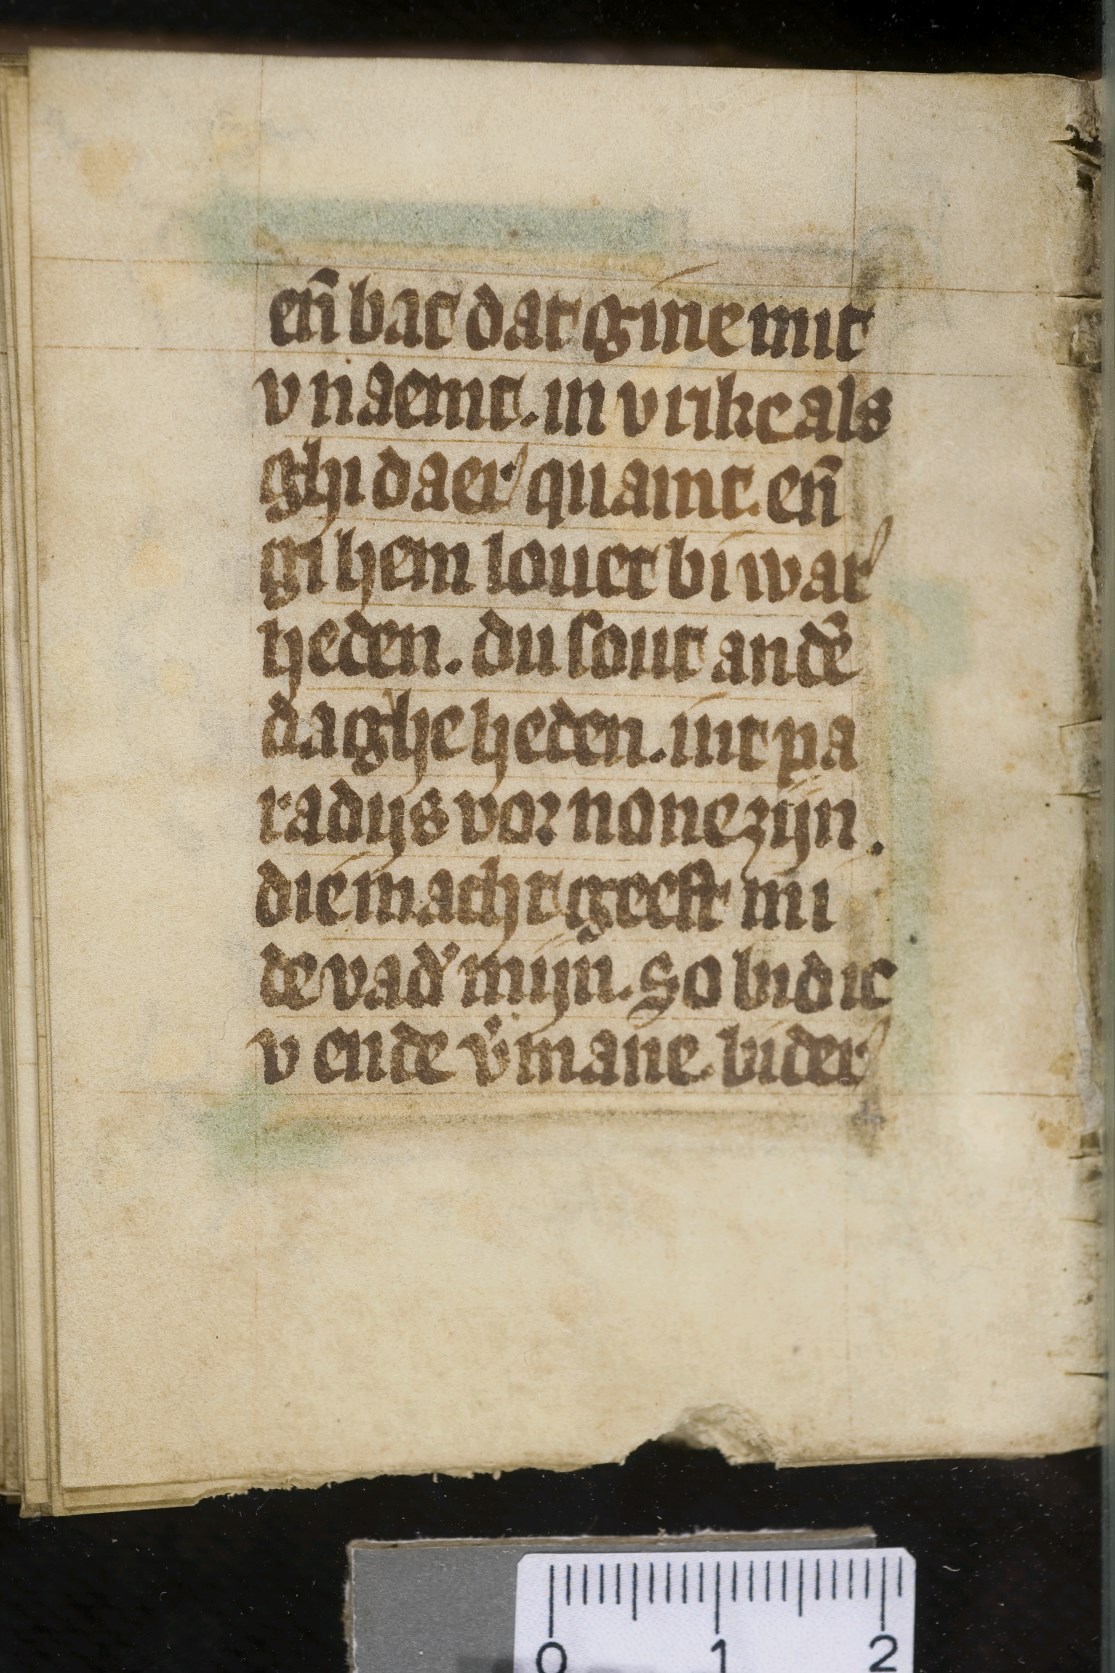 en̄ bat dat gíne mit
v naemt. in v rike als
ghi daer quamt. en̄
gi hem louet bi waer
heden. du sout and͛e
daghe heden. int pa
radijs vor none zijn.
die macht geeft mi
de vad͛ mijn. So bid ic
v ende v͛mane. bi der
0 1 2